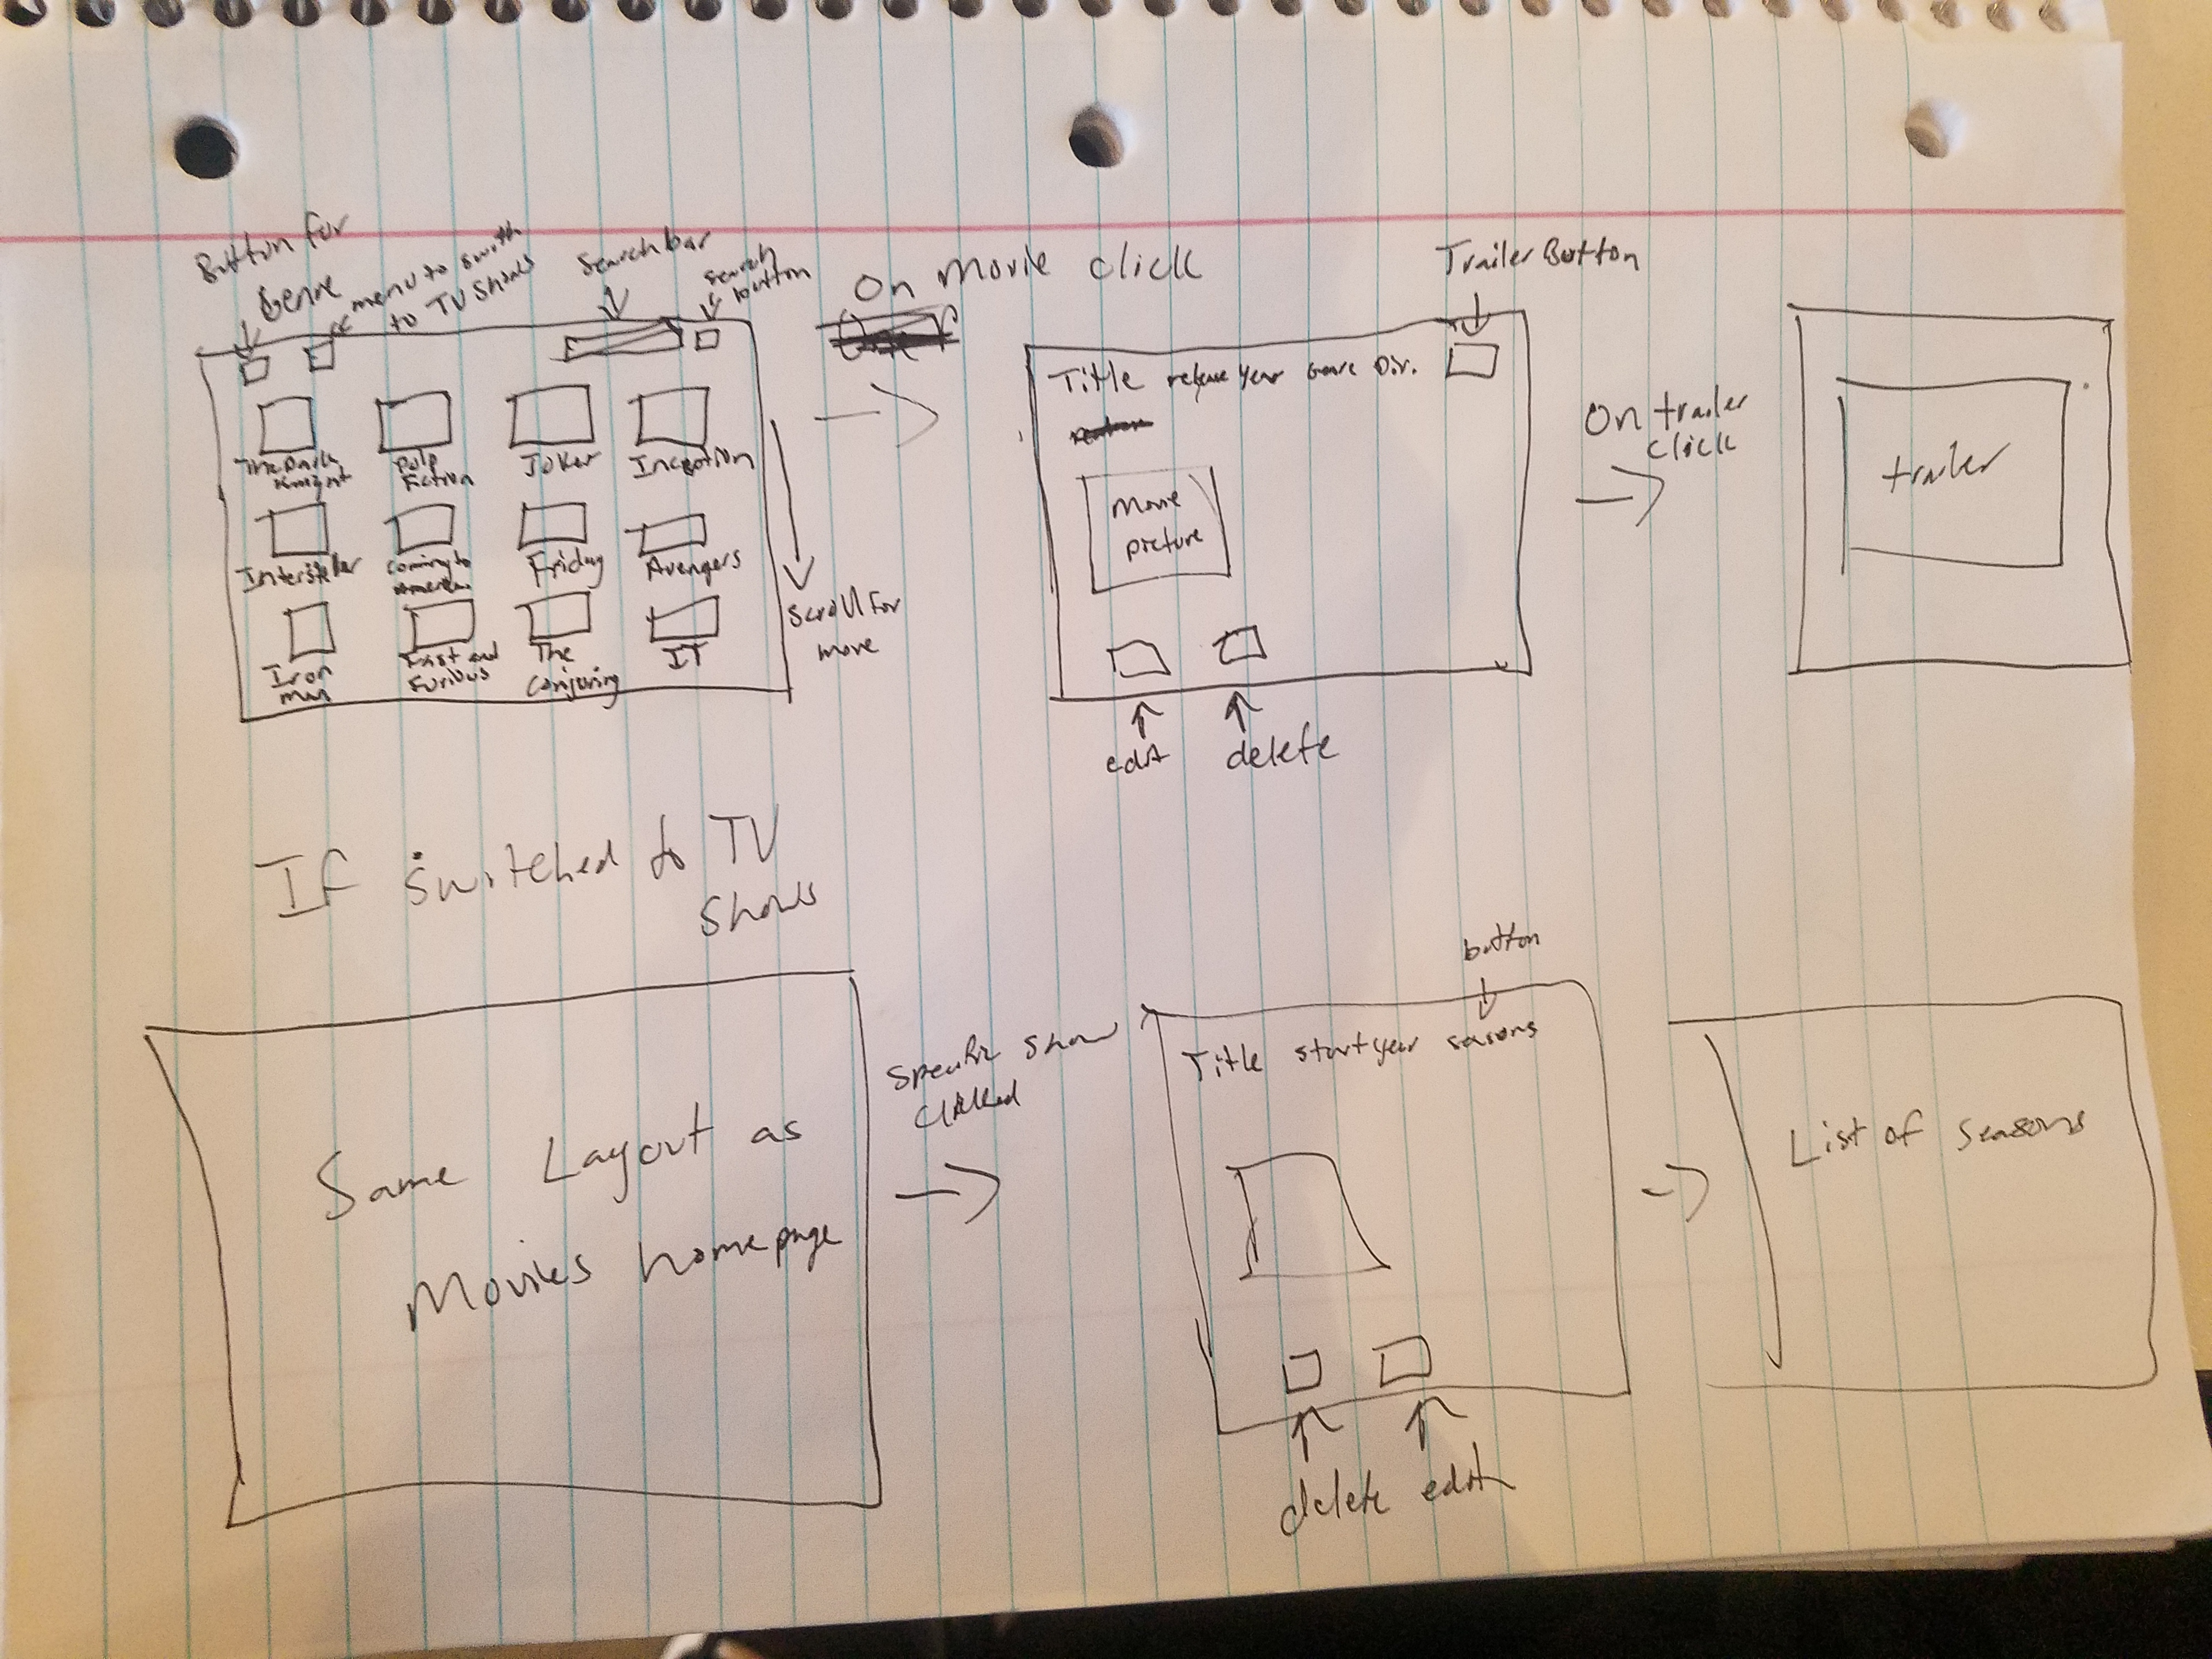 Button for
Genre
menu to swith
to TV Shows
Search bar
search
button
The Dark
Knight
Pulp
Fiction
Joker
Inception
Intersteller
Coming to
America
Friday
Avengers
Iron
man
Fast and
Furious
The
Conjuring
IT
Scroll for
more
On Movie click
Trailer Button
Title release year Genre Dir.
Movie
picture
edit
delete
On trailer
click
trailer
If switched to TV
Shows
Same Layout as
Movies homepage
Specific show
clicked
button
Title start year seasons
delete edit
List of seasons